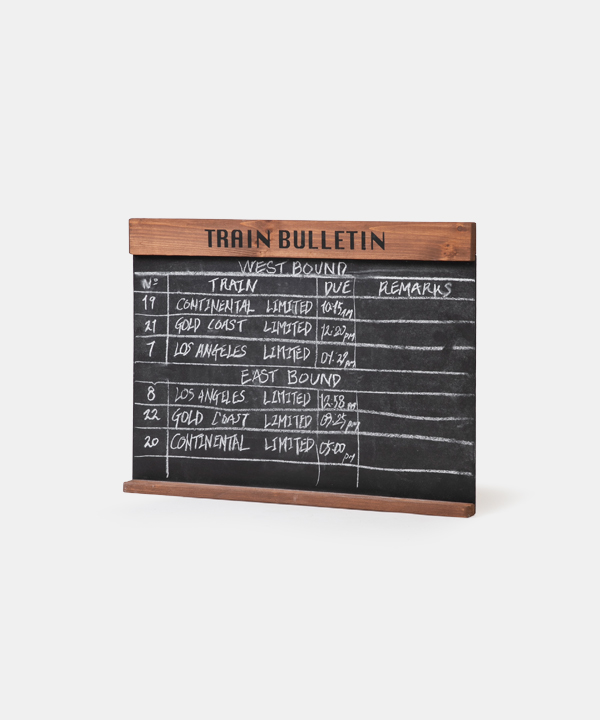 TRAIN BULLETIN
WEST BOUND
Nº TRAIN DUE REMARKS
19 CONTINENTAL LIMITED 10:45 AM
21 GOLD COAST LIMITED 12:20 PM
7 LOS ANGELES LIMITED
EAST BOUND
8 LOS ANGELES LIMITED 12:38
22 GOLD COAST LIMITED 09:25 PM
20 CONTINENTAL LIMITED 05:00 PM